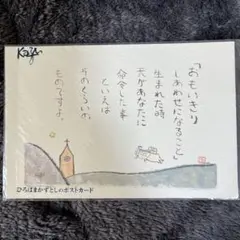 「おもいきり
しあわせになること」
生まれた時
天があなたに
命令した事
といえば
そのくらいの
ものですよ。
ひろはまかずとしのポストカード